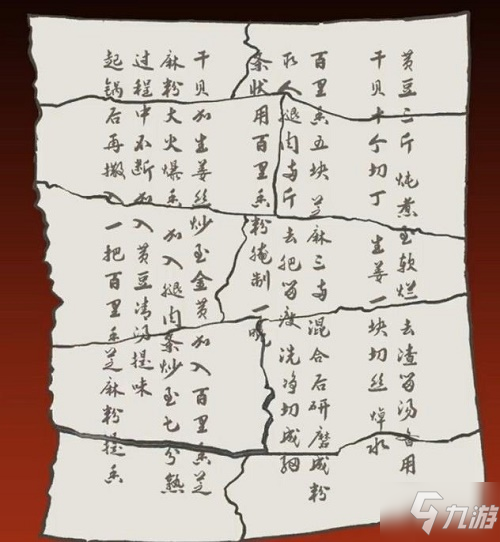 黄豆三斤 炖煮至软烂 去渣留汤备用
干贝十个切丁 生姜一块切丝焯水
百里香五块 芝麻三两 混合后研磨成粉
取人腿肉两斤 去肥留瘦 洗净切成细
条状用百里香粉腌制一晚
干贝加生姜丝炒至金黄 加入百里香芝
麻粉大火爆香 加入腿肉条炒至七分熟
过程中不断加入黄豆清汤提味
起锅后再撒入一把百里香芝麻粉提香
九游